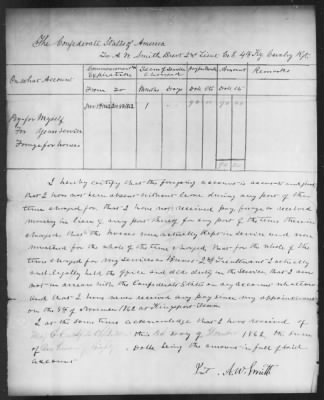 The Confederate States of America
To A. W. Smith Brevt 2nd Lieut Co E 4th Ky Cavalry Rgt.
On what Account
Commencement & Expiration
Term of Service Charged
Pay per Month
Amount
Remarks
From To
Months Days
Dolls Cts
Dolls Cts
1
90 00
90 00
Pay for Myself
For Years Service
Forage for horses
90 00
I hereby certify that the foregoing account is accurate and just,
that I have not been absent without leave during any part of the
time charged for, that I have not received pay, forage or received
money in lieu of any part thereof for any part of the time therein
charged, that the horses were actually kept in service and were
mustered for the whole of the time charged that for the whole of the
time charged for my Services as Brevet 2nd Lieutenant I actually
and legally held the Office and did duty in the Service that I am
not in arrears with the Confederate States on any account whatsoever
and that I have never received any pay since my appointment
on the 8th of November 1862 at
I at the same time acknowledge that I have received of
this day of 1862 the sum
of Dolls being the amount in full of said
account
A. W. Smith